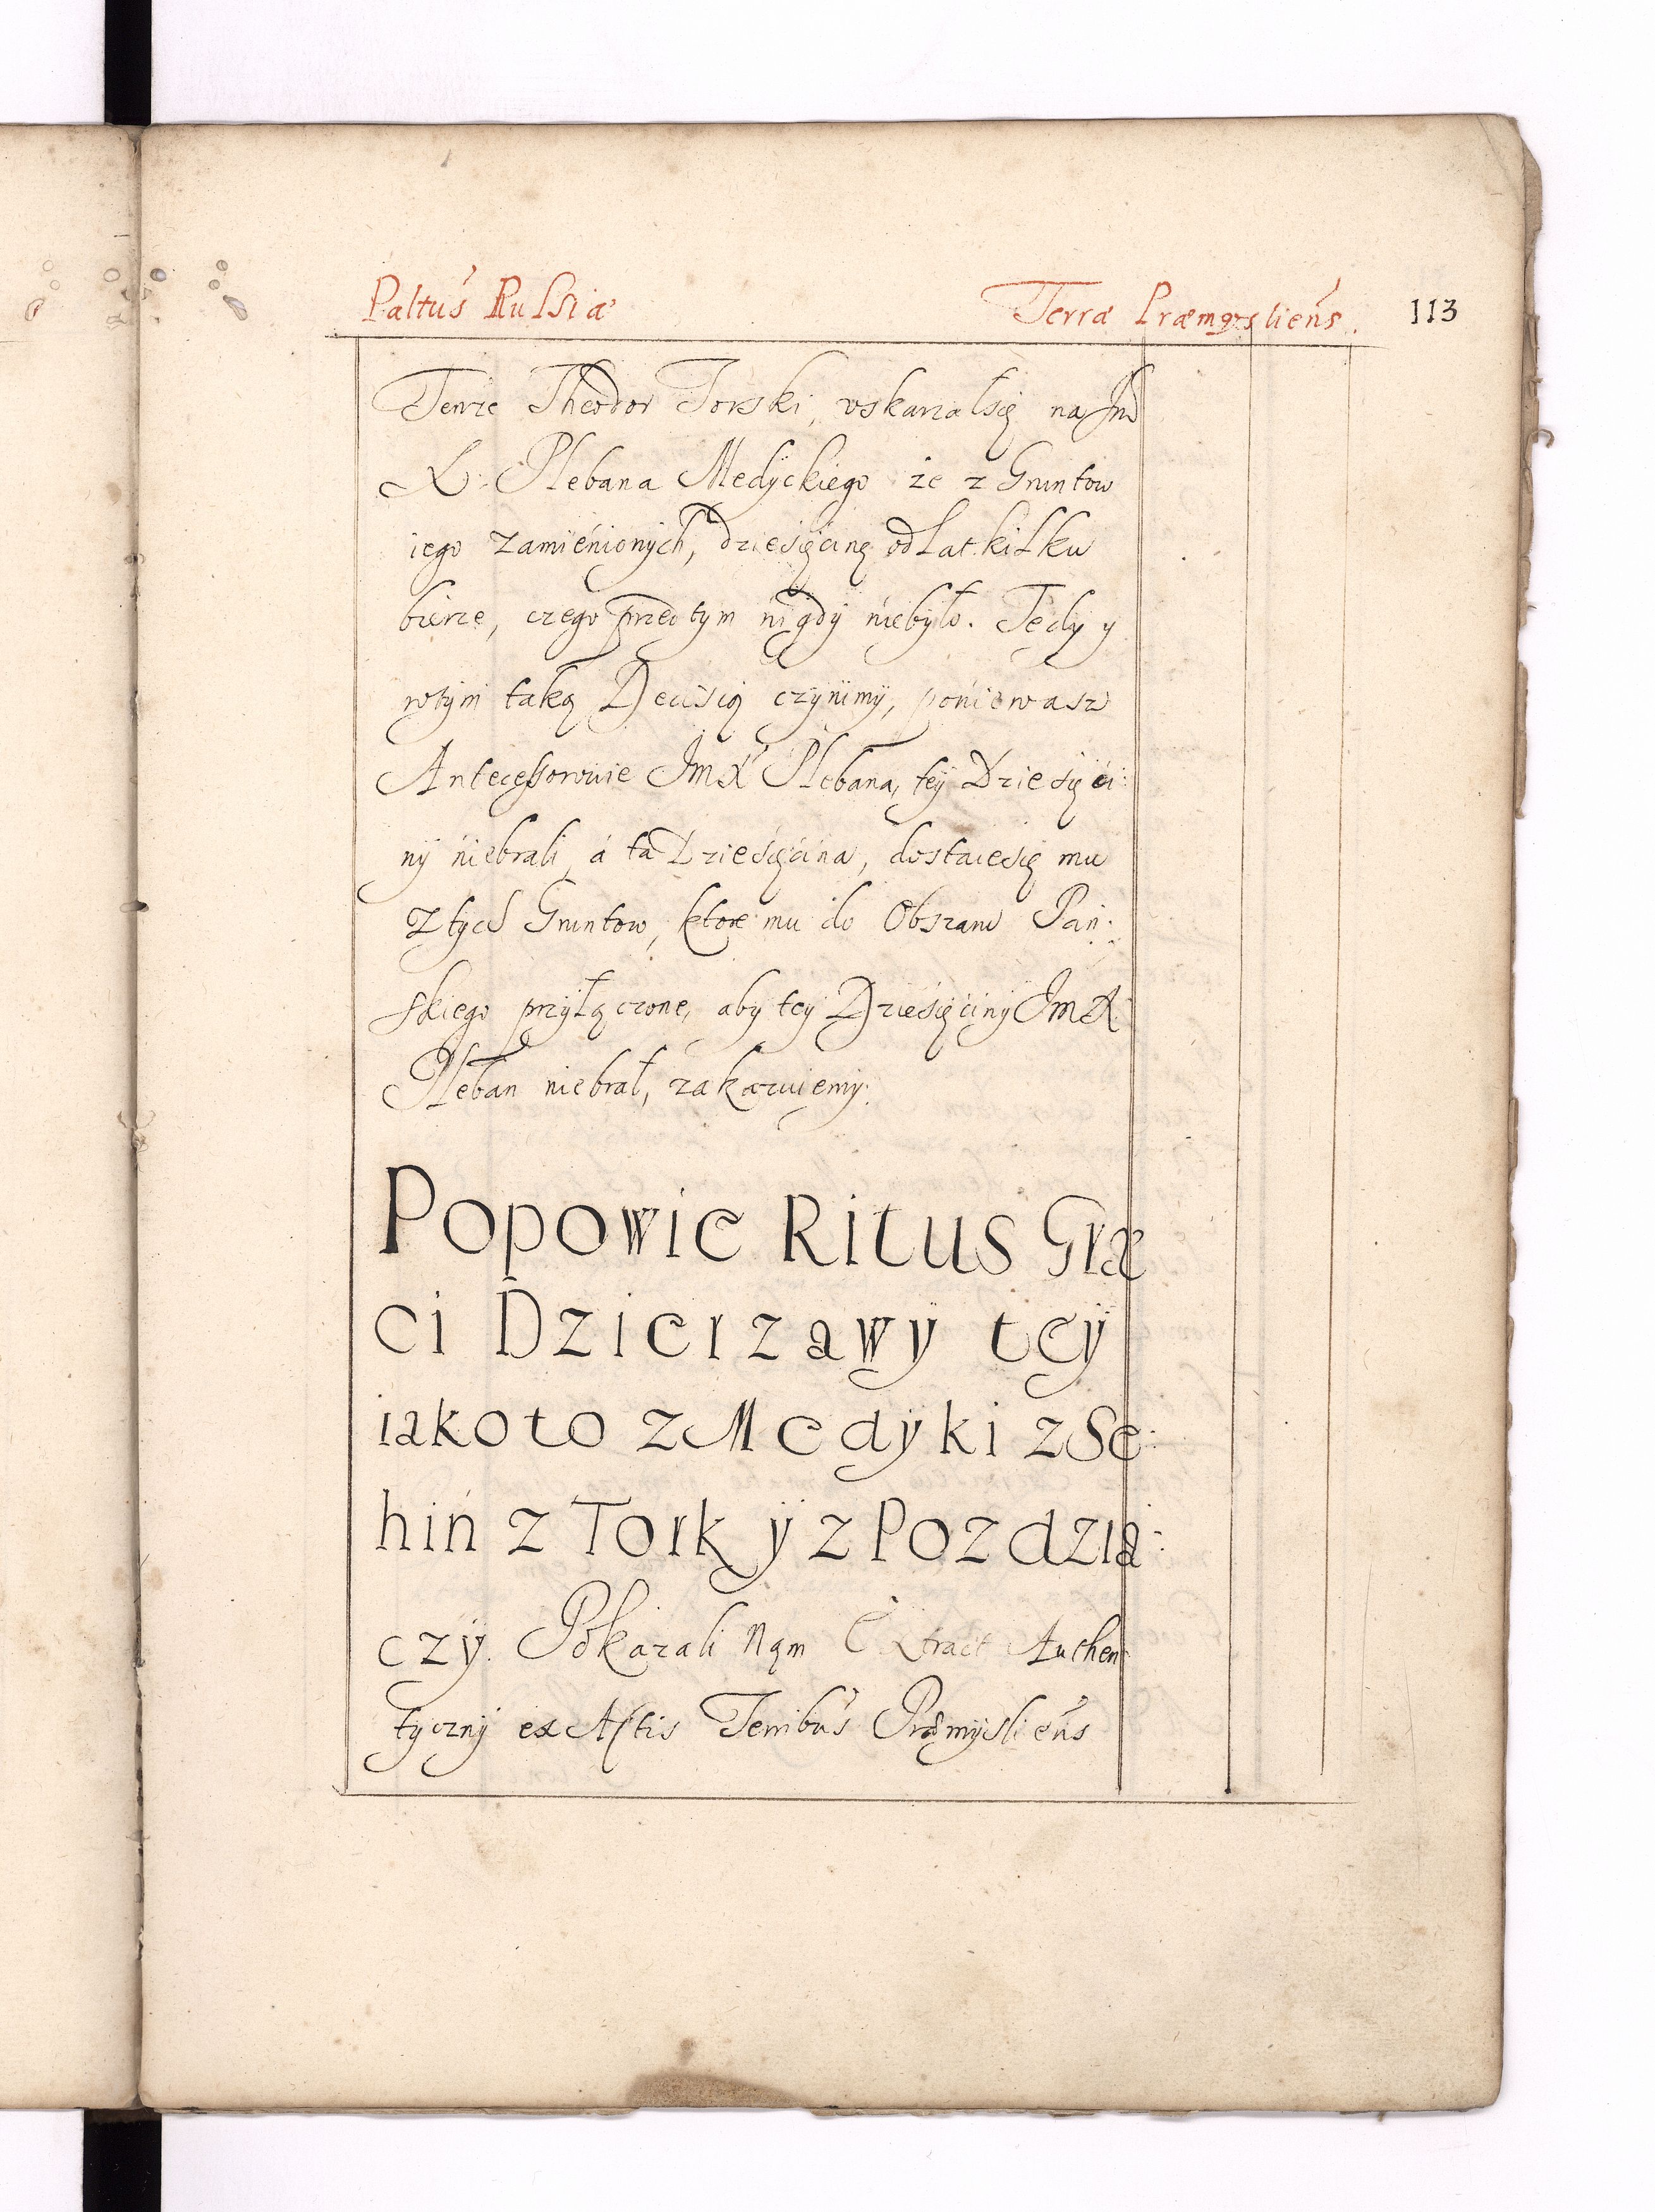 Paltus Russiæ Terræ Præmysliens. 113
Tenze Theodor Torski, vskarzalsię na Jm
X: Plebana Medyckiego że z Gruntow
iego zamienionych, dziesięcinę od Lat kilku
bierze, czego przedtym nigdy niebyło. Tedy y
wtym taką Decisią czynimy, poniewasz
Antecessorowie Jm X Plebana, tey Dziesięci:
ny niebrali, á ta Dziesięcina, dostaiesię mu
z tych Gruntow, ktore mu do Obszaru Pań:
skiego przyłączone, aby tey Dziesięciny Jm X
Pleban niebrał, zakazuiemy.
Popowie Ritus Græ
ci Dzierzawy tey
iakoto z Medyki z Se:
hiń z Tork y z Pozdzia:
czy. Pokazali Nąm Extract Authen
tyczny ex Actis Terribus Præmysliens